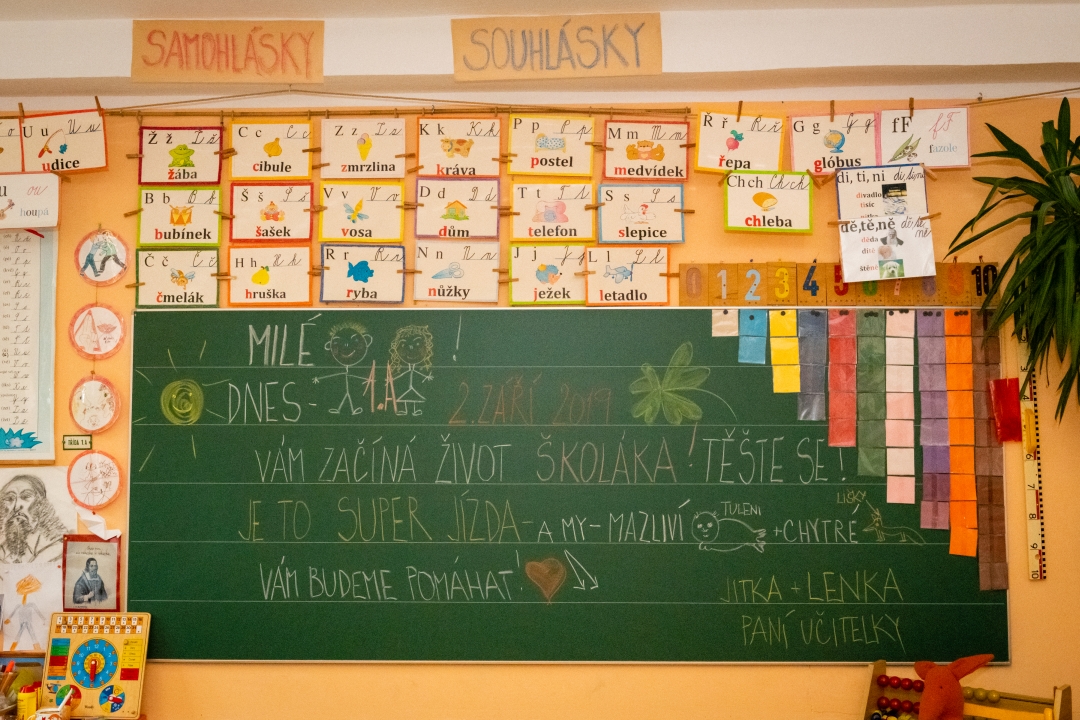 SAMOHLÁSKY SOUHLÁSKY
U u U u
udice
Ž ž Ž ž
žába
C c C c
cibule
Z z Z z
zmrzlina
K k K k
kráva
P p P p
postel
M m M m
medvídek
Ř ř Ř ř
řepa
G g G g
glóbus
f F f F
fazole
u ou
houpá
B b B b
bubínek
Š š Š š
šašek
V v V v
vosa
D d D d
dům
T t T t
telefon
S s S s
slepice
Ch ch Ch ch
chleba
di, ti, ni di, ti, ni
divadlo
tisíc
dě,tě,ně dě tě ně
děda
dítě
štěně
Č č Č č
čmelák
H h H h
hruška
R r R r
ryba
N n N n
nůžky
J j J j
ježek
L l L l
letadlo
0 1 2 3 4 5 6 7 8 9 10
MILÉ !
1.A
DNES- 2. ZÁŘÍ 2019
VÁM ZAČÍNÁ ŽIVOT ŠKOLÁKA! TĚŠTE SE!
JE TO SUPER JÍZDA- A MY- MAZLIVÍ TULENI + CHYTRÉ LIŠKY
VÁM BUDEME POMÁHAT!
JITKA + LENKA
PANÍ UČITELKY
TŘÍDA 1.A
6
7
8
9
10